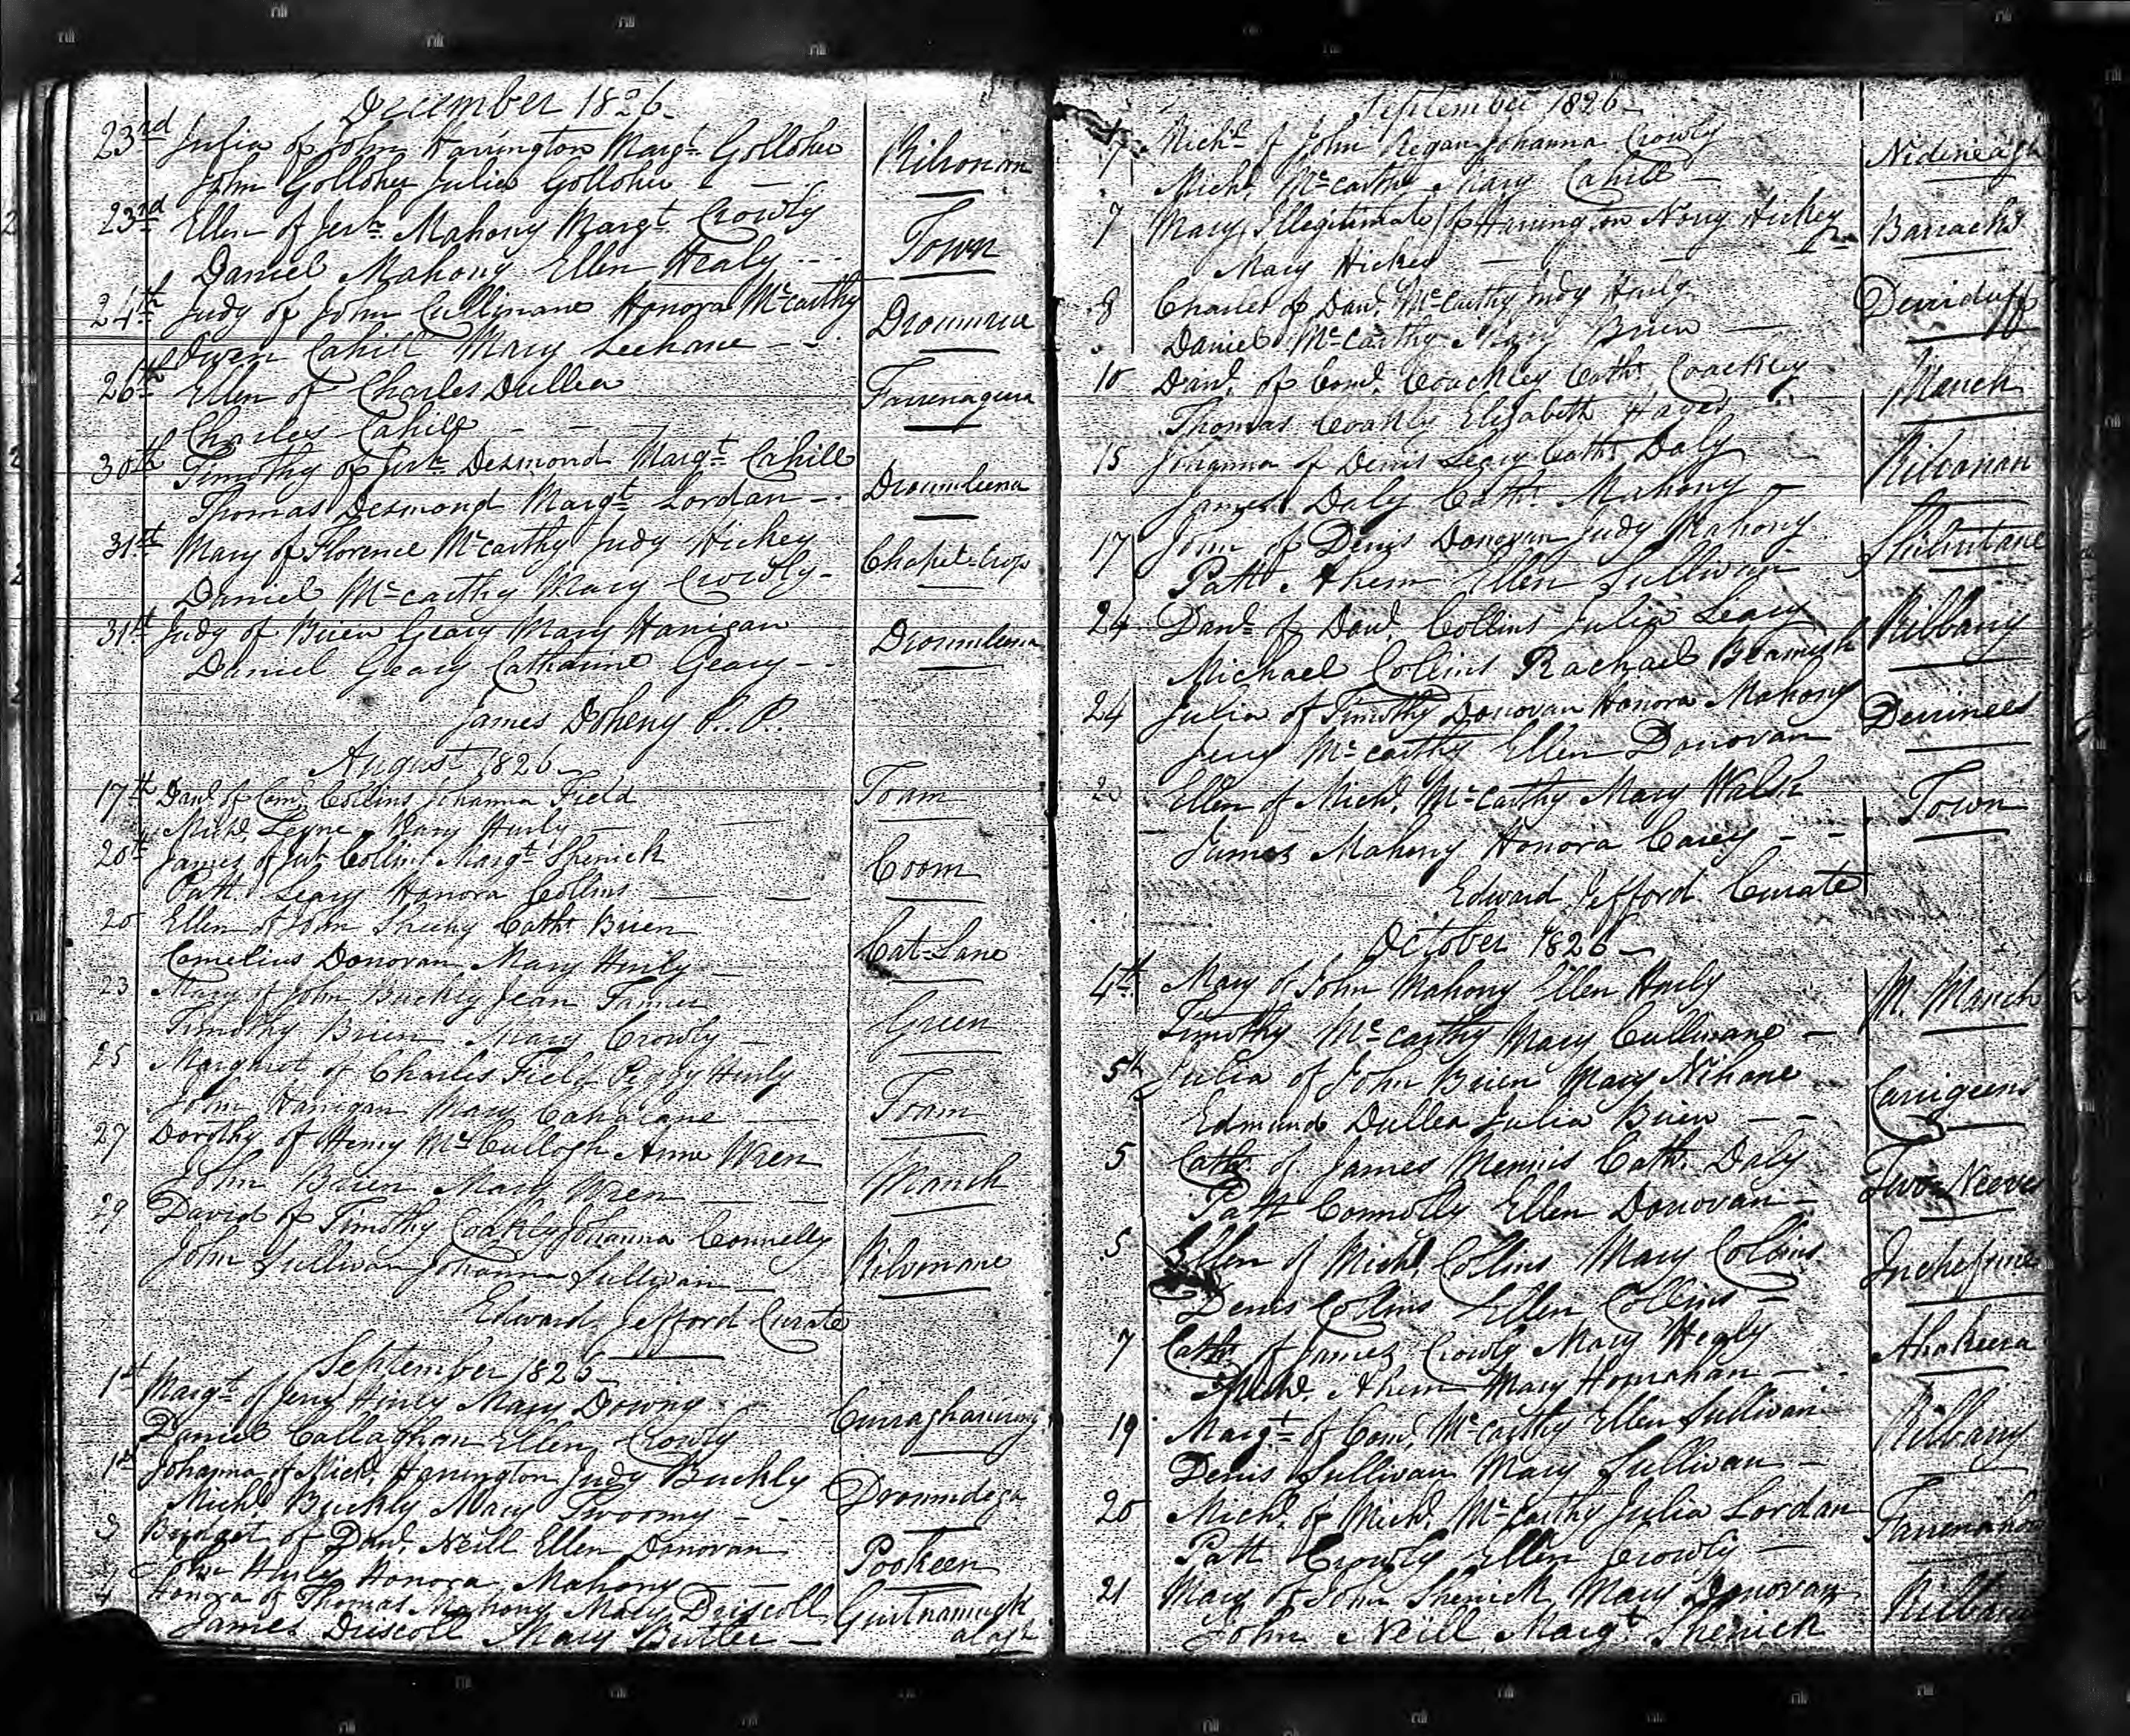 December 1826
23rd Julia of John Harrington Margt. Golloher
John Golloher Julia Golloher Kilronan
23rd Ellen of Jerh. Mahony Margt. Crowly
Daniel Mahony Ellen Healy Town
24th Judy of John Cullinane Honora McCarthy
Owen Cahill Mary Leehane
26th Ellen of Charles Dullea
Charles Cahill Farrenagura
30th Timothy of Jerh. Desmond Margt. Cahill
Thomas Desmond Margt. Lordan Dromleena
31st Mary of Florence McCarthy Judy Hickey
Daniel McCarthy Mary Crowly Chapel-Crop
31st Judy of Brien Geary Mary Hanigan
Daniel Geary Catharine Geary Dromleena
James Doheny P. P.
August 1826
17th Danl. of Corns. Collins Johanna Field
Michl. Leyne Mary Hurly Toam
20th James of Jerh. Collins Margt. Shenick
Patt Leary Honora Collins Coom
20 Ellen of John Sheehy Cath. Brien
Cornelius Donovan Mary Hurly Cat-Lane
23 Mary of John Buckly Jean Farmer
Timothy Brien Mary Crowly Green
25 Margaret of Charles Field Peggy Hurly
John Hanigan Mary Cahalane Toam
27 Dorothy of Henry McCullogh Anne Wren
John Brien Mary Wren Manch
29 David of Timothy Coakley Johanna Connelly
John Sullivan Johanna Sullivan Kilvonane
Edward Jefford Curate
September 1826
1st Margt. of Jerry Hiney Mary Downy
Daniel Callaghan Ellen Crowly
1st Johanna of Michl. Harrington Judy Buckly
Michl. Buckly Mary Twoomy Dromidega
3 Bridget of Danl. Neill Ellen Donovan
Hurly Honora Mahony Pookeen
4 Honora of Thomas Mahony Mary Driscoll
James Driscoll Mary Butler
September 1826
7 Michl. of John Regan Johanna Crowly
Michl. McCarthy Mary Cahill Nedineagh
7 Mary (Illegitimate) of Harrington Nory Hickey
Mary Hickey Barracks
8 Charles of Danl. McCarthy Judy Hurly
Daniel McCarthy Mary Brien Derriduff
10 Danl. of Cornl. Coackley Cath. Coackley
Thomas Coakly Elizabeth Hayes Manch
15 Johanna of Denis Leary Cath. Daly
James Daly Cath. Mahony Kilronan
17 John of Denis Donovan Judy Mahony
Patt Ahern Ellen Sullivan
24 Danl. of Danl. Collins Julia Leary
Michael Collins Rachael Beamish Kilbarry
24 Julia of Timothy Donovan Honora Mahony
Jerry McCarthy Ellen Donovan Derrinees
Ellen of Michl. McCarthy Mary Walsh
James Mahony Honora Carey Town
Edward Jefford Curate
October 1826
4th Mary of John Mahony Ellen Hurly
Timothy McCarthy Mary Cullinane M. Manch
5th Julia of John Brien Mary Nihane
Edmund Dullea Julia Brien Carrigeens
5 Cath. of James Mennis Cath. Daly
Patt Connolly Ellen Donovan
5 Ellen of Michl. Collins Mary Collins
Denis Collins Ellen Collins
7 Cath. of James Crowly Mary Healy
Michl. Ahern Mary Hornahan Ahakeera
19 Margt. of Cornl. McCarthy Ellen Sullivan
Denis Sullivan Mary Sullivan Kilbarry
20 Michl. of Michl. McCarthy Julia Lordan
Patt Crowly Ellen Crowly
21 Mary of John Shenick Mary Donovan
John Neill Margt. Shenick